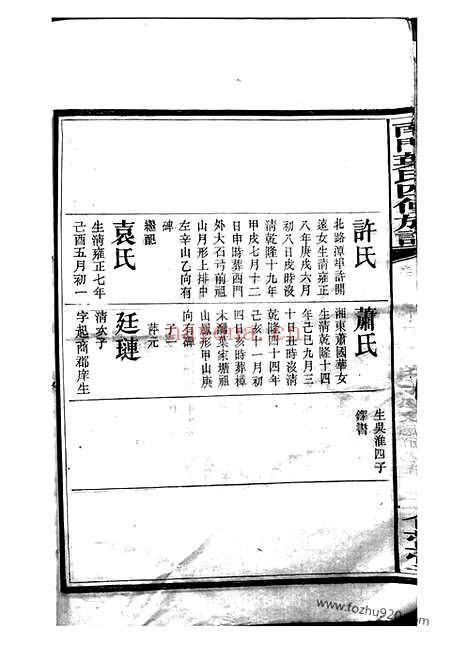 南門葉氏四修族譜
許氏
北路潭垶許開
遠女生清雍正
八年庚戌六月
初八日戌時沒
清乾隆十九年
甲戌七月十二
日申時葬西門
外大石弯前祖
山月形上排中
左辛山乙向有
碑
繼配
袁氏
生清雍正七年
己酉五月初一
蕭氏
湘東蕭國華女
生清乾隆十四
年己巳九月三
十日丑時沒清
乾隆四十四年
己亥十一月初
四日亥時葬
葉家塘祖
山 形甲山庚
向有碑
廷璉
清次子
字起商郡庠生
生吳淮四子
鐸書
nayona.cn
www.fozhu920.com